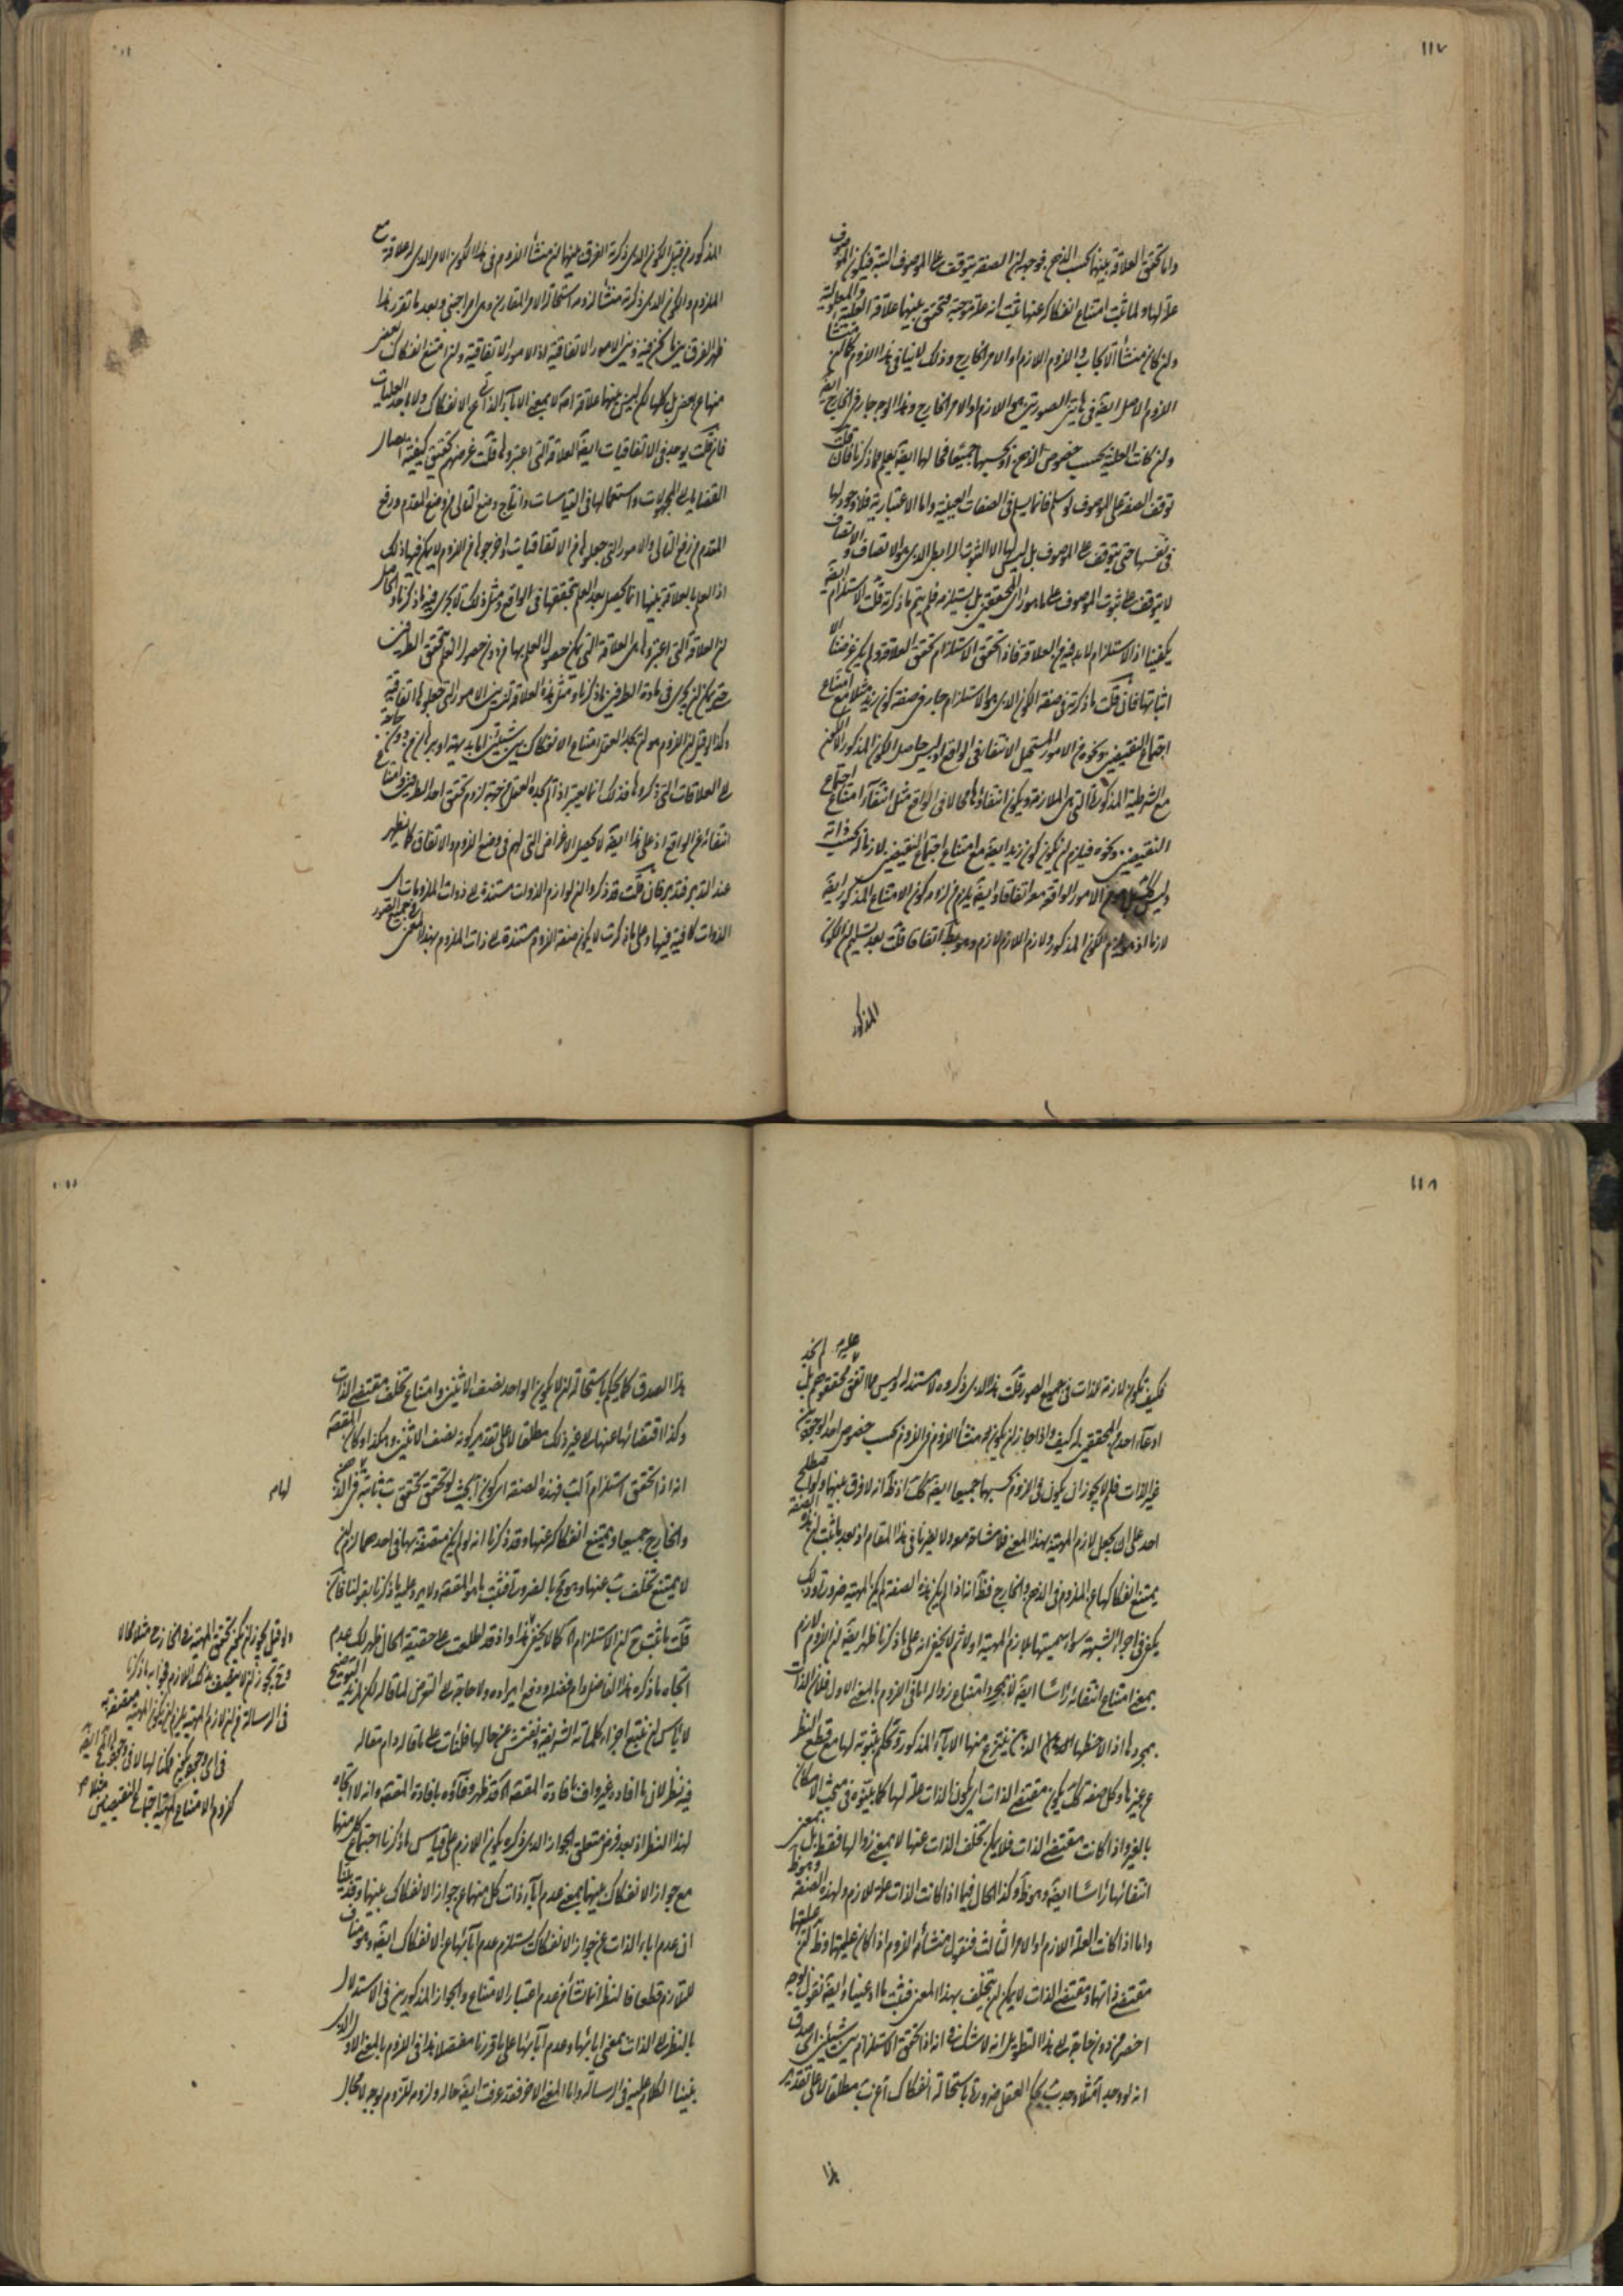 ١١٧
واما تحقق العلاقة بينهما بحسب الذهن فوجهه ان الصفة يتوقف على الموصوف البتة فيكون الموصوف
علة لها ولما ثبت امتناع انفكاكه عنها ثبت انه علة موجبة فتحقق بينهما علاقة العلية والمعلولية
وان كان منشأ الايجاب واللزوم اللازم او الامر الخارج وذلك لا ينافي هذا اللزوم كما ان منشأ
اللزوم الاصل ايضا في هاتين الصورتين هو اللازم او الامر الخارج وهذا الوجه جار في الخارج ايضا
وان كانت العلية بحسب خصوص الذهن او بحسبهما جميعا فحالها ايضا يعلم مما ذكرنا فان قلت
توقف الصفة على الموصوف لو سلم فانما يسلم في الصفات العينية واما الاعتبارية فلا وجود لها
في نفسها حتى يتوقف على الموصوف بل ليس لها الا الثبوت الرابطي الذي هو الاتصاف والاتصاف
لا يتوقف على ثبوت الموصوف على ما هو رأي المحققين بل يستلزمه فلم يتم ما ذكرته قلت الاستلزام ايضا
يكفينا اذ الاستلزام لا بد فيه من العلاقة فاذا تحقق الاستلزام تحقق العلاقة ولم يكن غرضنا الا
اثباتها فان قلت ما ذكرته في صفة الكون الذي هو الاستلزام جار في صفة كون زيد مثلا مع امتناع
اجتماع النقيضين ونحوه من الامور المستحيل الانتفاء في الواقع او ليس حاصل الكون المذكور الا الكون
مع الشرطية المذكورة التي هي الملازمة ويكون انتفاؤها محالا في الواقع مثل انتفاء امتناع اجتماع
النقيضين ونحوه فيلزم ان يكون كون زيد ايضا مع امتناع اجتماع النقيضين لازما له بحسب ذاته
وليس كذلك بل هو من الامور الواقعة معه اتفاقا وايضا يلزم من لزامه كون الامتناع المذكور ايضا
لازما اذ هو لازم الكون المذكور ولازم اللازم لازم وهو بط اتفاقا قلت بعد تسليم ان الكون
المذكور
المذكور من قبيل الكون الذي ذكرته الفرق بينهما ان منشأ اللزوم في هذا الكون الامر الذي له علاقة مع
الملزوم والكون الذي ذكرته منشأ لزومه استحالة الامر المقارن وهي امر اجنبي وبعد ما تقرر هذا
ظهر الفرق بين ما نحن فيه وبين الامور الاتفاقية اذ الامور الاتفاقية وان امتنع انفكاك بعض
منها عن بعض بل كلها لكن ليس بينها علاقة اصلا بمعنى الاباء الذاتي عن الانفكاك ولا باحد العليات
فان قلت يوجد في الاتفاقيات ايضا العلاقة التي اعتبروها قلت غرضهم تحقيق كيفية ايصال
القضايا الى المجهولات واستعمالها في القياسات وانتاج وضع التالي من وضع المقدم ورفع
المقدم من رفع التالي والامور التي جعلوها من الاتفاقيات واخرجوها من اللزوم لا يمكن فيها ذلك
اذ العلم بالعلاقة بينها انما يحصل بعد العلم بتحققها في الواقع ومثل ذلك لا يجري فيه ما ذكرنا والحاصل
ان العلاقة التي اعتبروها هي العلاقة التي يمكن حصول العلم بها من دون حصول العلم بتحقق الطرفين
حتى يمكن ان يجري في مادة الطرفين ما ذكرنا ومثل هذه العلاقة ليس بين الامور التي جعلوها اتفاقية
وكذا لو قيل ان اللزوم هو ان يجد العقل امتناع الانفكاك بين شيئين اما بديهة او ببرهان من دون حاجة
الى العلاقات التي ذكروها فذلك انما يعتبر اذا لم يجده العقل من جهة لزوم تحقق احد الطرفين وامتناع
انتفائه في الواقع اذ على هذا ايضا لا يحصل الاغراض التي لهم في وضع اللزوم والاتفاق كما يظهر
عند التدبر فتدبر فان قلت قد ذكروا ان لوازم الذوات مستندة الى ذوات الملزومات اي
الذوات كافية فيها وعلى ما ذكرت لا يكون صفة اللزوم مستندة الى ذات الملزوم بهذا المعنى في جميع الصور
١١٨
فكيف تكون لازمة للذات في جميع الصور قلت هذا الذي ذكروه لا سند له وليس مما اتفق عليه محققوهم بل لم نجد
ادعاه احد من المحققين له كيف واذا جاز ان يكون منشأ اللزوم في اللزوم بحسب خصوص احد الوجودين
غير الذات فلم لا يجوز ان يكون في اللزوم بحسبهما جميعا ايضا كذلك اذ ظ انه لا فرق بينهما ولو اصطلح
احد على ان يجعل لازم المهية بهذا المعنى فلا مشاحة معه ولا يضرنا في هذا المقام اذ بعد ما ثبت ان هذه الصفة
يمتنع انفكاكها عن الملزوم في الذهن والخارج فظ انه اذا لم يكن هذه الصفة لم يكن المهية ضرورة وذلك
يكفي في اجراء الشبهة سواء سميتها بلازم المهية او لا ثم لا يخفى انه على ما ذكرنا ظهر ايضا ان اللزوم لازم
بمعنى امتناع انتفائه رأسا ايضا لا بمجرد امتناع زواله اما في اللزوم بالمعنى الاول فلان الذات
بمجردها اذا لاحظها الذهن ينتزع منها الاباء المذكور ويحكم بثبوته لها مع قطع النظر
عن غيرها وكل صفة كذلك يكون مقتضى الذات اي يكون الذات علة لها كما بينوه في مبحث الامكان
بالغير واذا كانت مقتضى الذات فلا يمكن تخلف الذات عنها لا بمعنى زوالها فقط بل بمعنى
انتفائها رأسا ايضا وهو ظ وكذا الحال فيما اذا كانت الذات علة للازم ولهذه الصفة وهو ظ
واما اذا كانت العلة اللازم او الامر الثالث فنقول منشأ اللزوم اذا كان عليتها وظ ان عليتها
مقتضى ذاتها ومقتضى الذات لا يمكن ان يتخلف بهذا المعنى فثبت ما ادعينا وايضا نقول بوجه
اخصر من دون حاجة الى هذا التطويل انه لا شك في انه اذا تحقق الاستلزام بين شيئين اي صدق
انه لو وجد آ مثلا وجد ب يحكم العقل ضرورة باستحالة انفكاك آ عن ب مطلقا لا على تقدير
هذا
هذا الصدق كما يحكم باستحالة ان لا يكون الواحد نصف الاثنين وامتناع تخلف مقتضى الذات
وكذا اقتضائها عنها الى غير ذلك مطلقا لا على تقدير كونه نصف الاثنين وهكذا وكان المقصود
انه اذا تحقق استلزام آ لب فهذه الصفة اي كون آ بحيث لو تحقق تحقق ب ثابتة في الذهن
والخارج جميعا ويمتنع انفكاكه عنها وقد ذكرنا انه لو لم يكن متصفة بها في احدهما لزم ان
لا يمتنع تخلف ب عنها وهو بط بالضرورة فثبت ما هو المقصود ولا يرد عليه ما ذكرنا بقولنا فان
قلت ما ثبت ان الاستلزام آه كما لا يخفى هذا واذ قد اطلعت على حقيقة الحال ظهر لك عدم
اتجاه ما ذكره هذا الفاضل دام فضله ودفع ايراده ولا حاجة الى التعرض لما قاله لكن لمزيد التوضيح
لا بأس ان نتتبع اجزاء كلماته الشريفة ونفتش عن حالها فلنأت على ما قاله دام مقاله
فيه نظر لان ما افاده غير واف بافادة المقصود آه قد ظهر وفاؤه بافادة المقصود وانه لا اتجاه
لهذا النظر اذ بعد فرض متعلق الجواز الذي ذكره يكون اللازم على قياس ما ذكرنا اجتماع كل منهما
مع جواز الانفكاك بينهما بمعنى عدم اباء ذات كل منهما عن جواز الانفكاك بينهما وقد بينا
ان عدم اباء الذات عن جواز الانفكاك يستلزم عدم ابائها عن الانفكاك ايضا وهو مناف
للتلازم قطعا فالنظر انما نشأ من عدم اعتبار الامتناع والجواز المذكورين في الاستدلال
بالنظر الى الذات بمعنى ابائها وعدم ابائها على ما قررنا مفصلا هذا في اللزوم بالمعنى الاول الذي
بنينا الكلام عليه في الرسالة واما المعنى الاخر فقد عرفت ايضا حاله ولزومه للزوم بوجه لا مجال
لهام